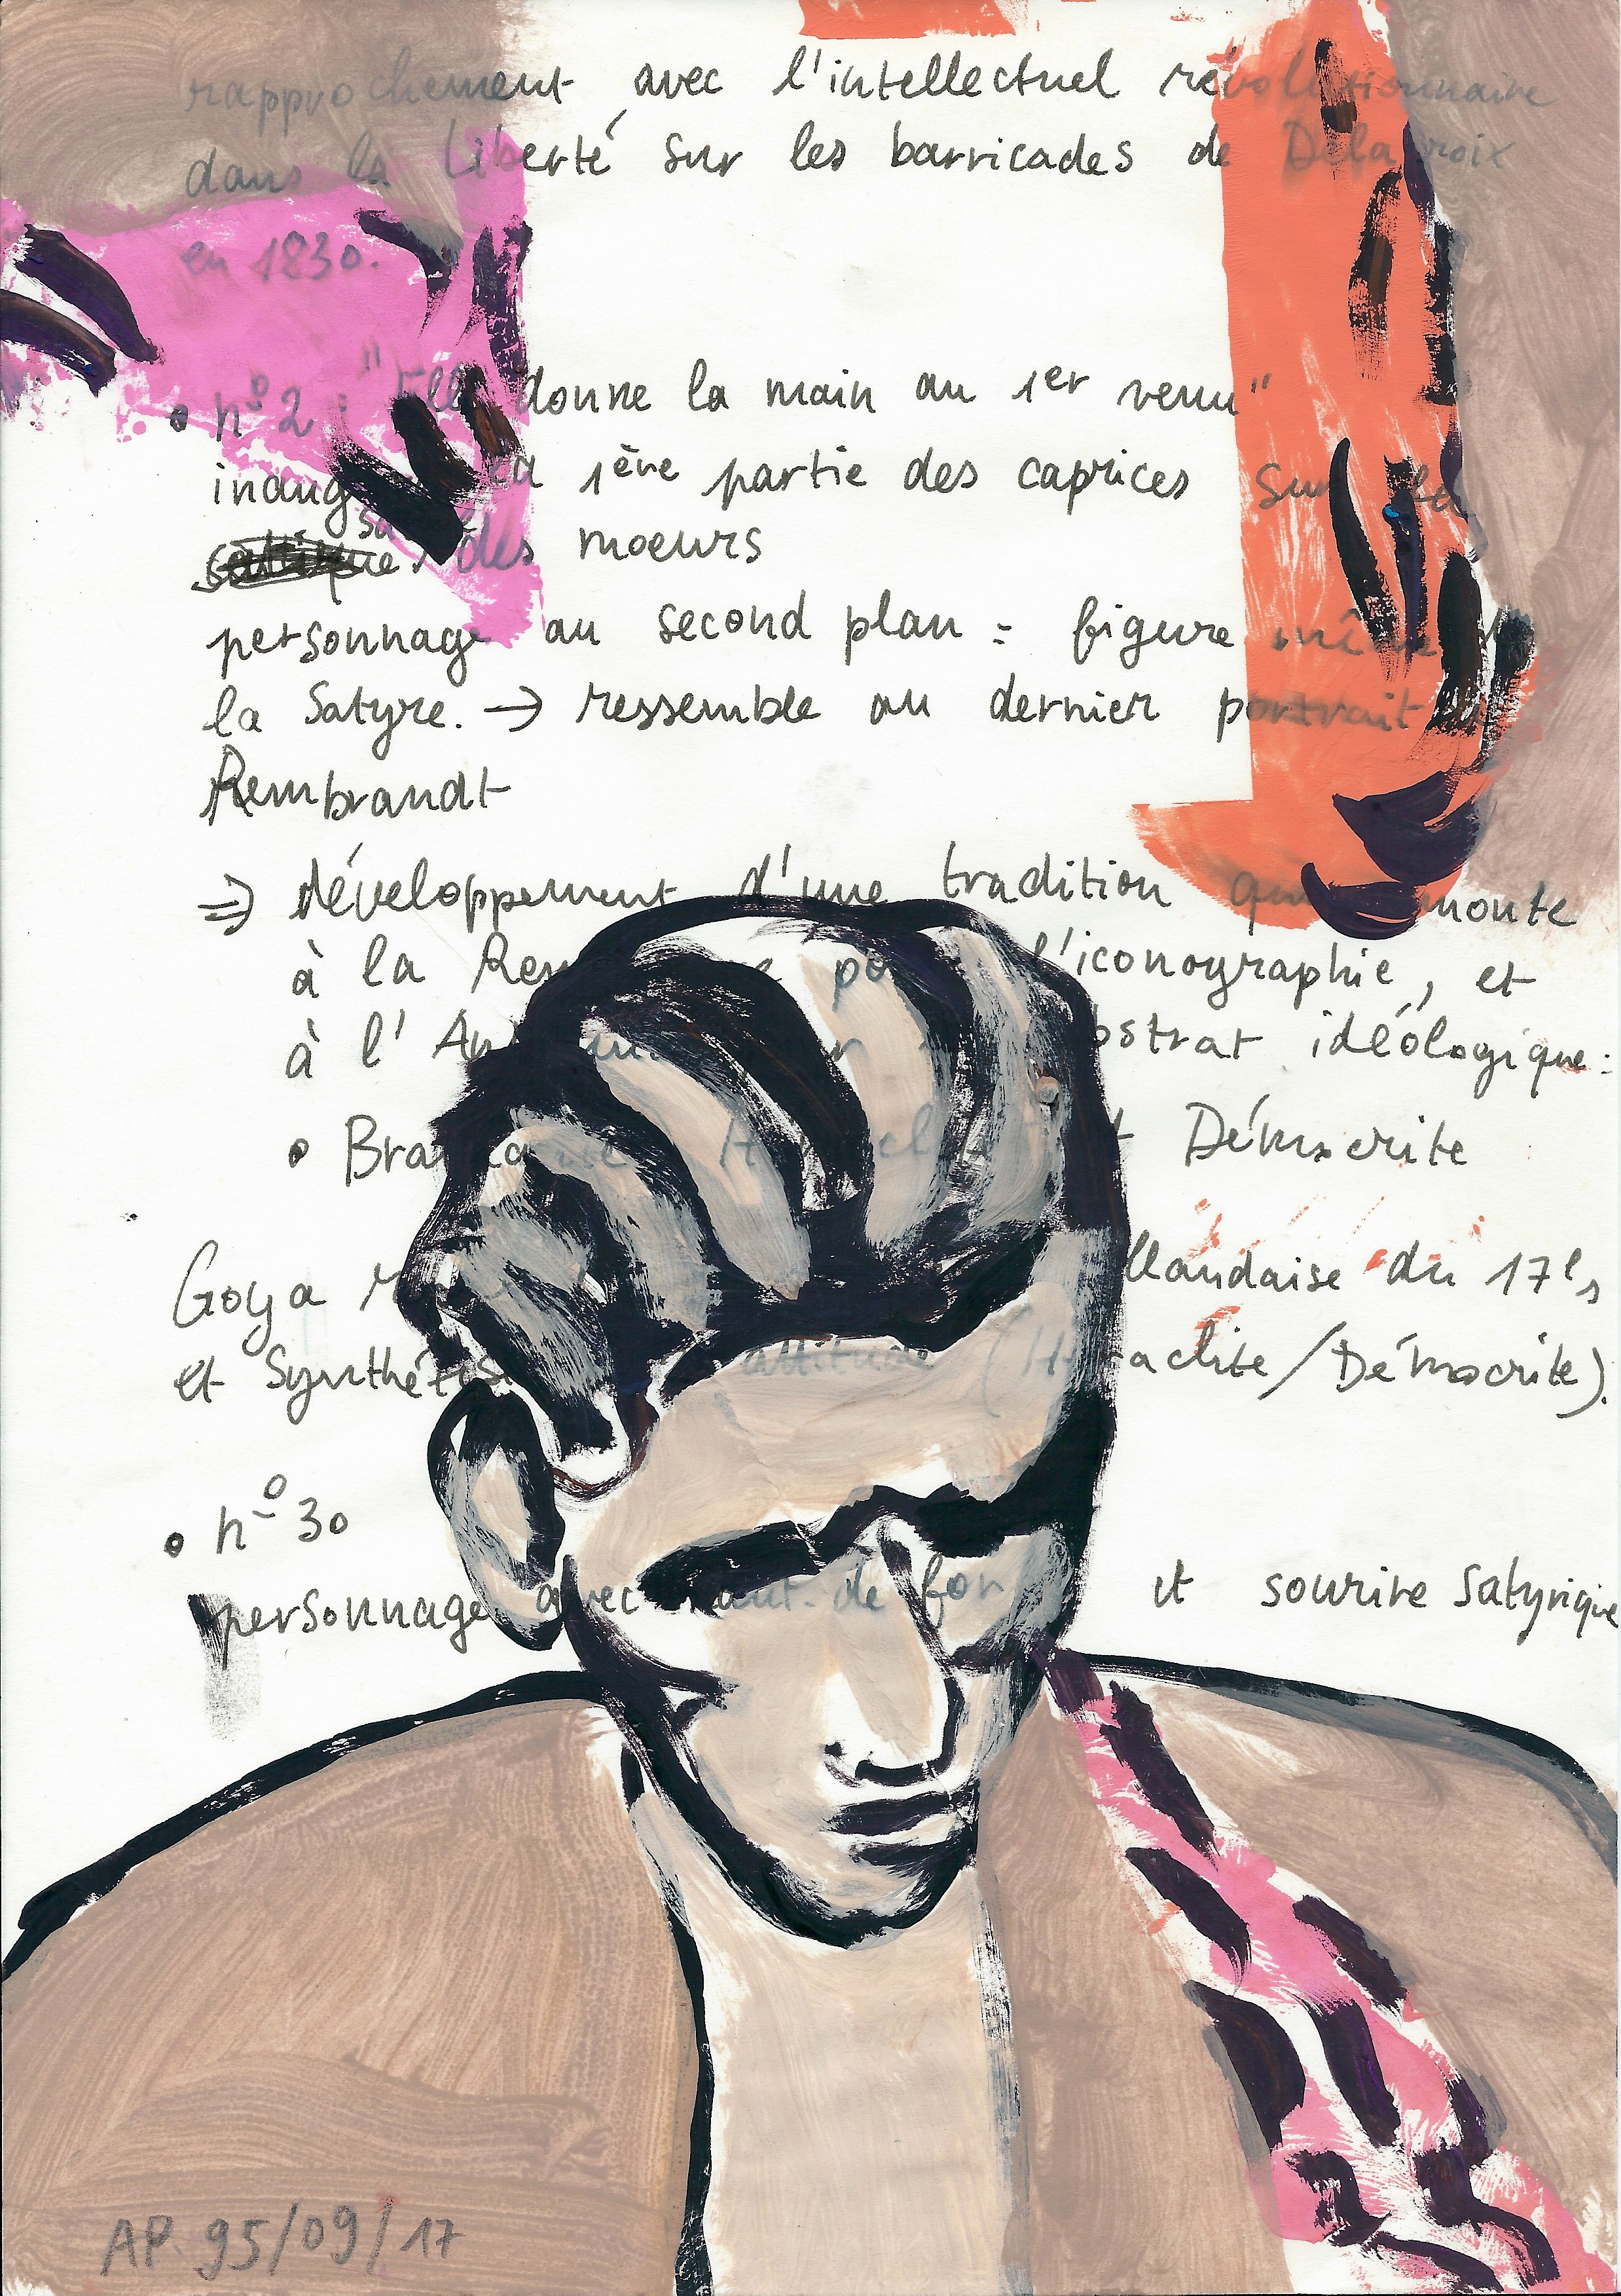 rapprochement avec l'intellectuel révolutionnaire
dans la Liberté sur les barricades de Delacroix
en 1830.
• n° 2 : "Elle donne la main au 1er venu"
inaug la 1ère partie des caprices sur la
des moeurs
personnage au second plan = figure même
la Satyre. → ressemble au dernier portrait
Rembrandt
⇒ développement d'une tradition qui monte
à la Ren po l'iconographie, et
à l'An bstrat idéologique :
• Bra Démocrite
Goya llandaise du 17e s
et Synthétis attitude (Héraclite/Démocrite).
• n° 30
personnage avec haut-de-for et sourire satyrique
AP. 95/09/17